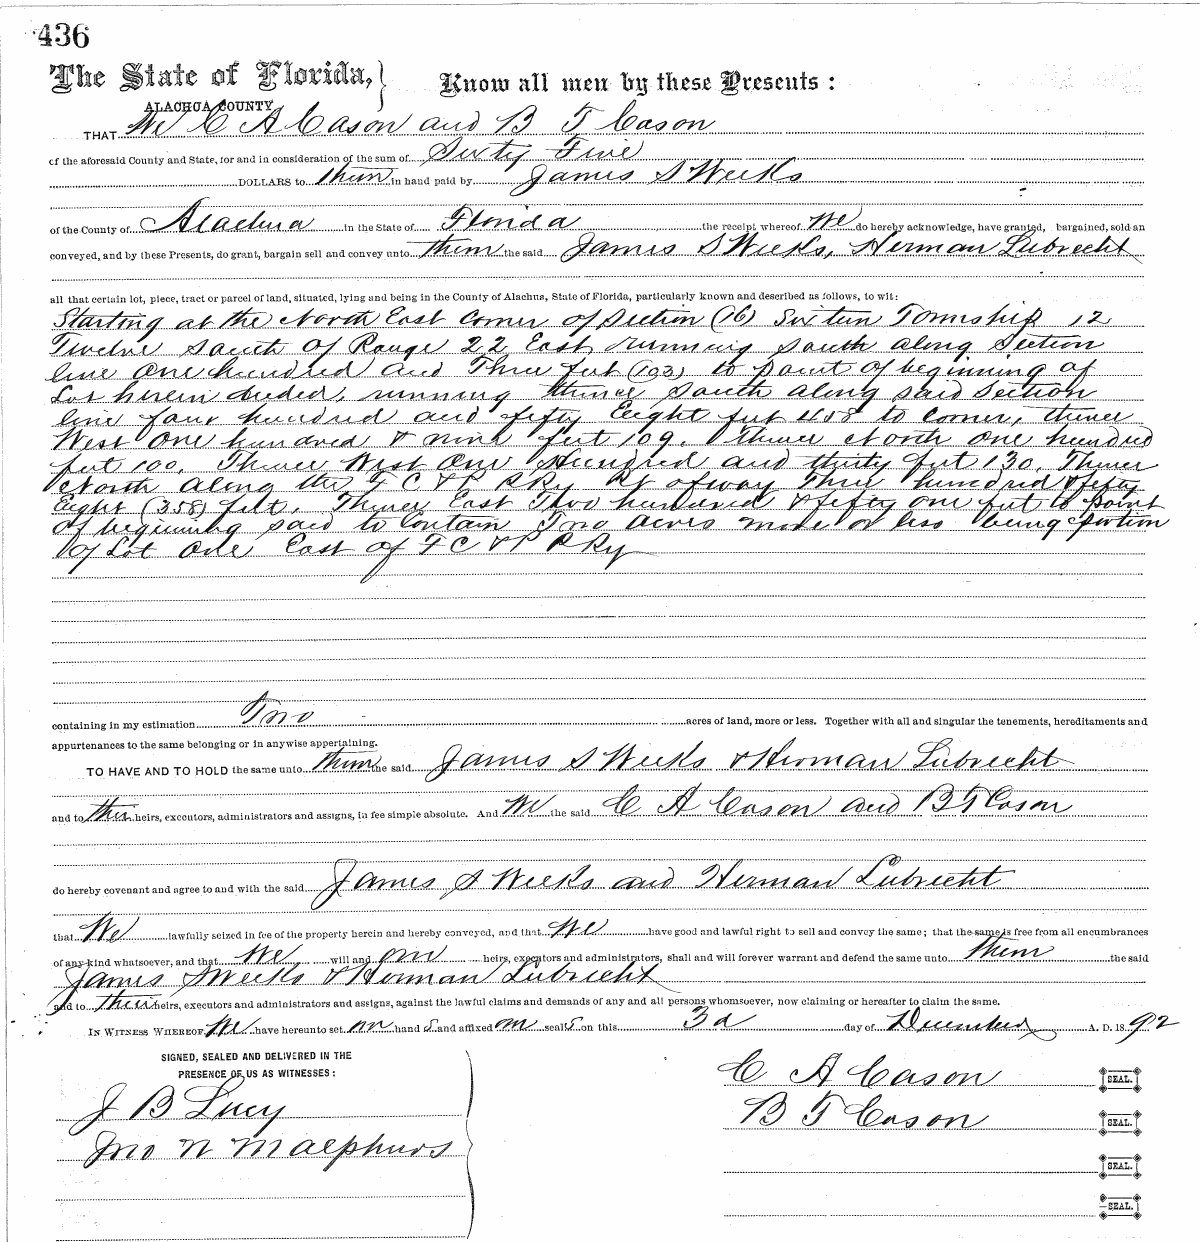 436
The State of Florida, } Know all men by these Presents :
ALACHUA COUNTY
THAT We C A Cason and B F Cason
of the aforesaid County and State, for and in consideration of the sum of Sixty Five
DOLLARS to them in hand paid by James S Weeks
of the County of Alachua in the State of Florida the receipt whereof We do hereby acknowledge, have granted, bargained, sold an
conveyed, and by these Presents, do grant, bargain sell and convey unto them the said James S Weeks, Herman Lubrecht
all that certain lot, piece, tract or parcel of land, situated, lying and being in the County of Alachua, State of Florida, particularly known and described as follows, to wit:
Starting at the North East Corner of Section (16) Sixteen Township 12
Twelve South of Range 22 East, running South along Section
line One hundred and Three feet (103) to point of beginning of
Lot herein deeded, running thence South along said Section
line four hundred and fifty Eight feet 458 to Corner, thence
West One hundred & nine feet 109. Thence North One hundred
feet 100. Thence West One Hundred and thirty feet 130. Thence
North along the F C & P R Ry Rt of way Three hundred & fifty
Eight (358) feet. Thence East Two hundred & fifty one feet to point
of beginning said to Contain Two acres more or less being portion
of Lot One East of F C & P R Ry
containing in my estimation Two acres of land, more or less. Together with all and singular the tenements, hereditaments and
appurtenances to the same belonging or in anywise appertaining.
TO HAVE AND TO HOLD the same unto them the said James S Weeks & Herman Lubrecht
and to their heirs, executors, administrators and assigns, in fee simple absolute. And We the said C A Cason and B F Cason
do hereby covenant and agree to and with the said James S Weeks and Herman Lubrecht
that We lawfully seized in fee of the property herein and hereby conveyed, and that We have good and lawful right to sell and convey the same; that the same is free from all encumbrances
of any kind whatsoever, and that We will and our heirs, executors and administrators, shall and will forever warrant and defend the same unto them the said
James S Weeks & Herman Lubrecht
and to their heirs, executors and administrators and assigns, against the lawful claims and demands of any and all persons whomsoever, now claiming or hereafter to claim the same.
IN WITNESS WHEREOF We have hereunto set our hand s and affixed our seal s on this 3d day of December A. D. 18 92
SIGNED, SEALED AND DELIVERED IN THE
PRESENCE OF US AS WITNESSES:
C A Cason SEAL.
J B Lucy
B F Cason SEAL.
Jno N Malphurs
SEAL.
SEAL.